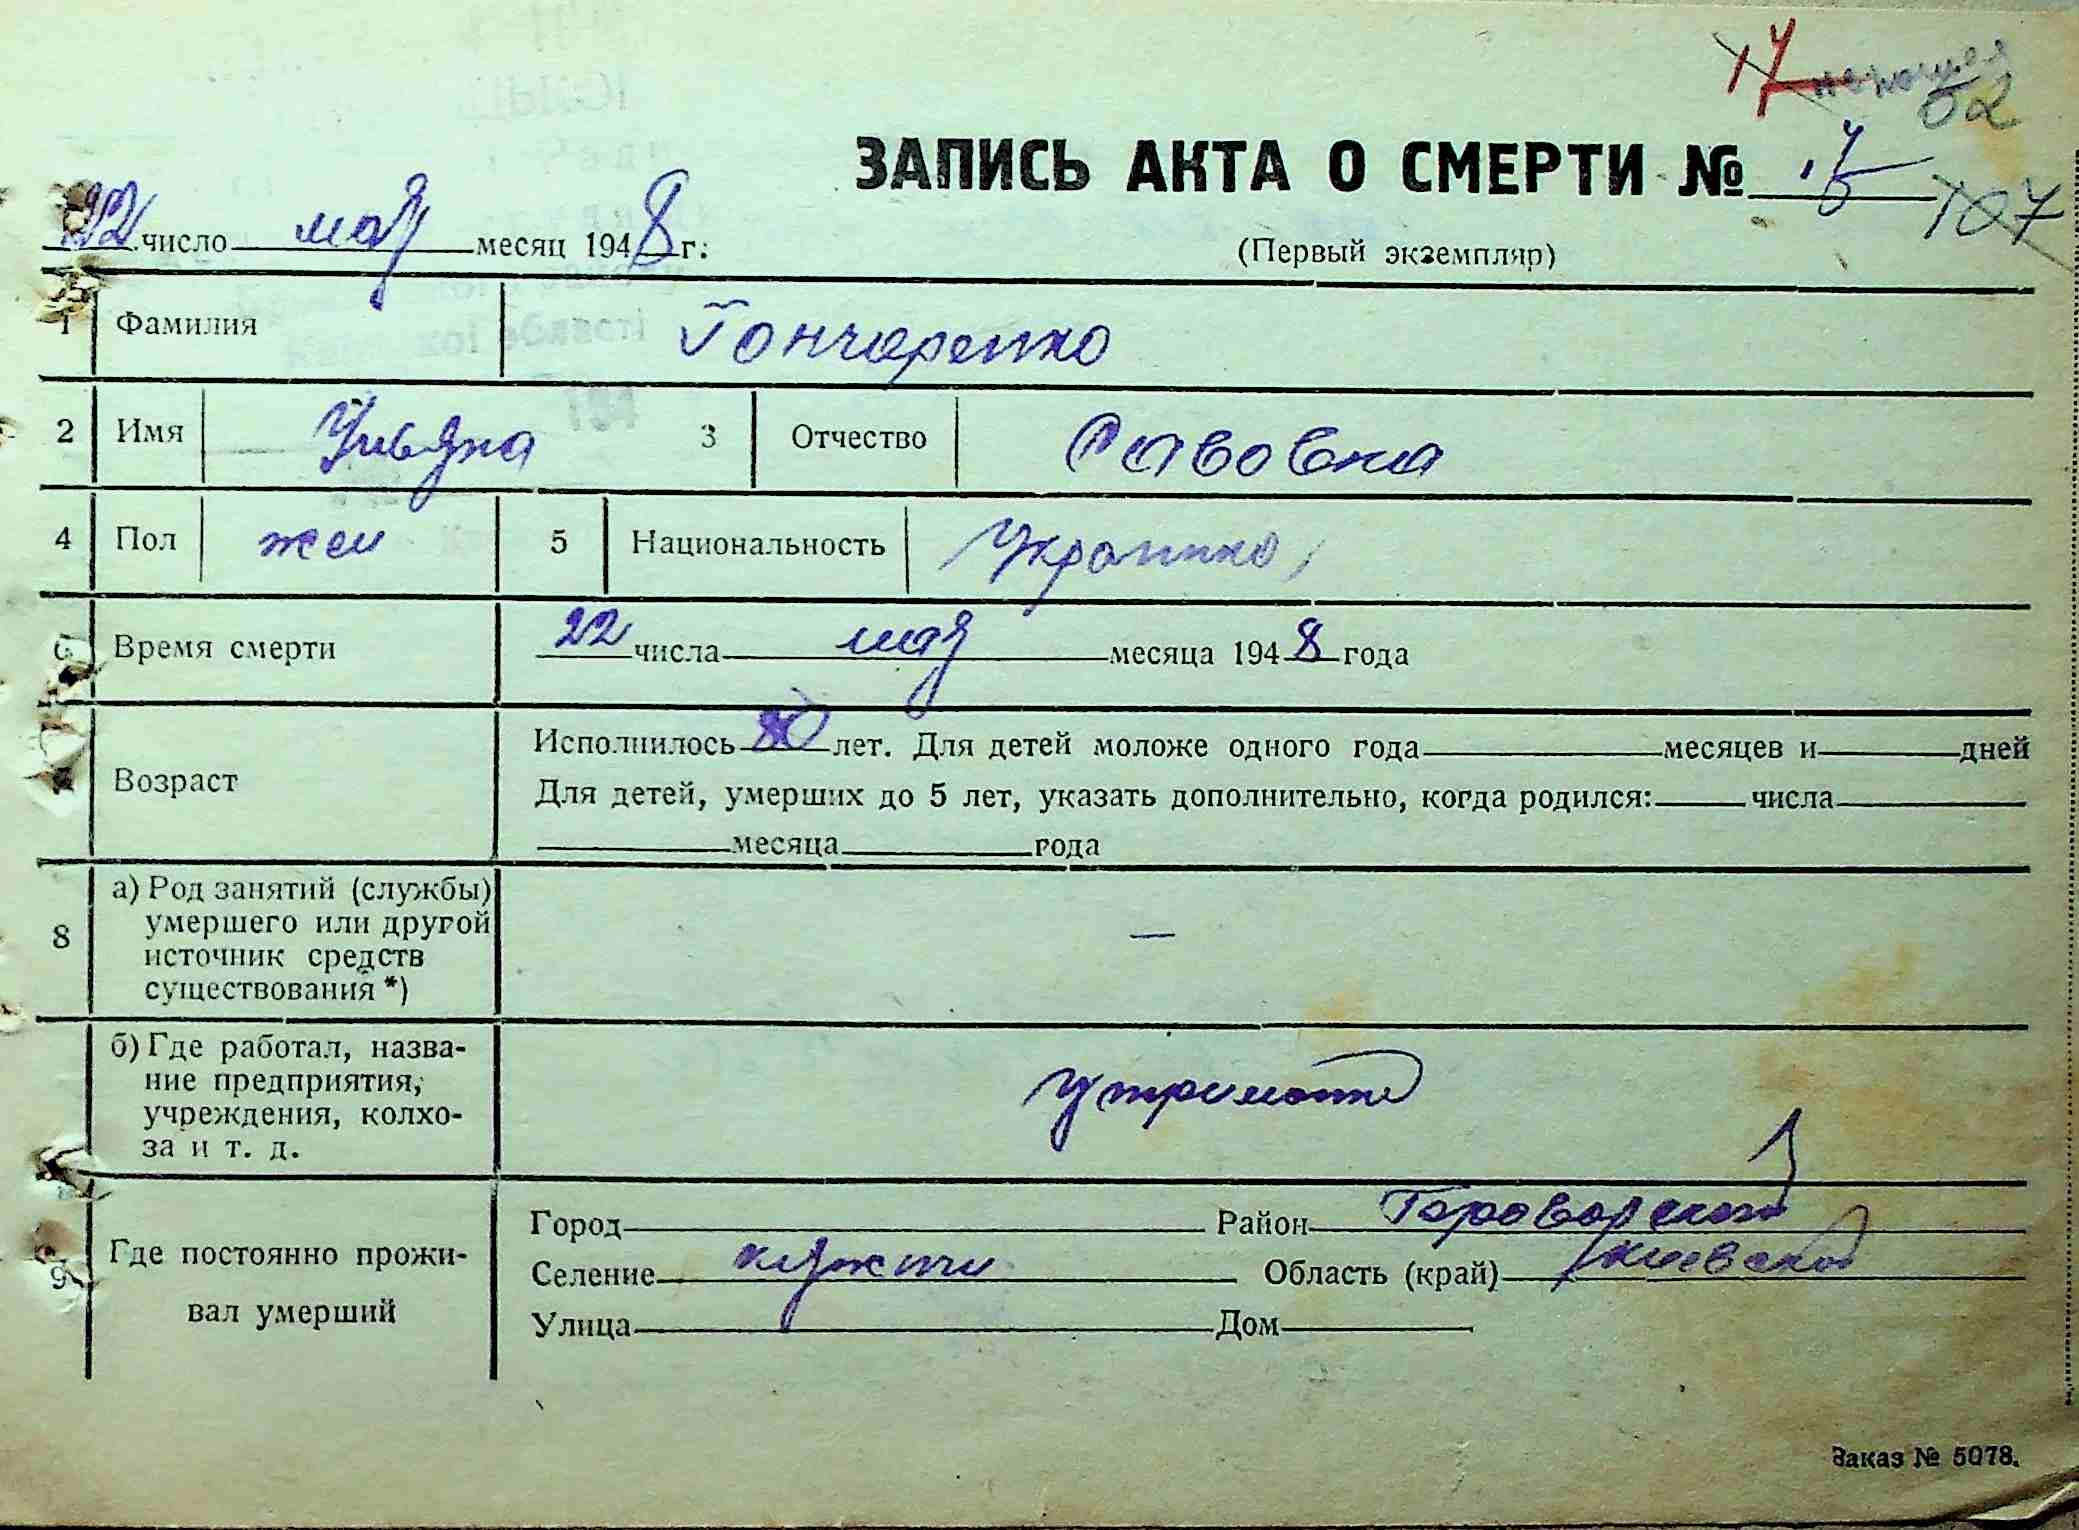 17
52
ЗАПИСЬ АКТА О СМЕРТИ №
107
22 число мая месяц 1948 г.
(Первый экземпляр)
1 Фамилия Гончаренко
2 Имя Ульяна 3 Отчество Савовна
4 Пол жен 5 Национальность Украинка
6 Время смерти 22 числа мая месяца 1948 года
Возраст
Исполнилось 80 лет. Для детей моложе одного года месяцев и дней
Для детей, умерших до 5 лет, указать дополнительно, когда родился: числа
месяца года
8 а) Род занятий (службы)
умершего или другой
источник средств
существования *)
—
б) Где работал, назва-
ние предприятия,
учреждения, колхо-
за и т. д.
9 Где постоянно прожи-
вал умерший
Город Район
Селение Область (край) Киевской
Улица Дом
Заказ № 5078.